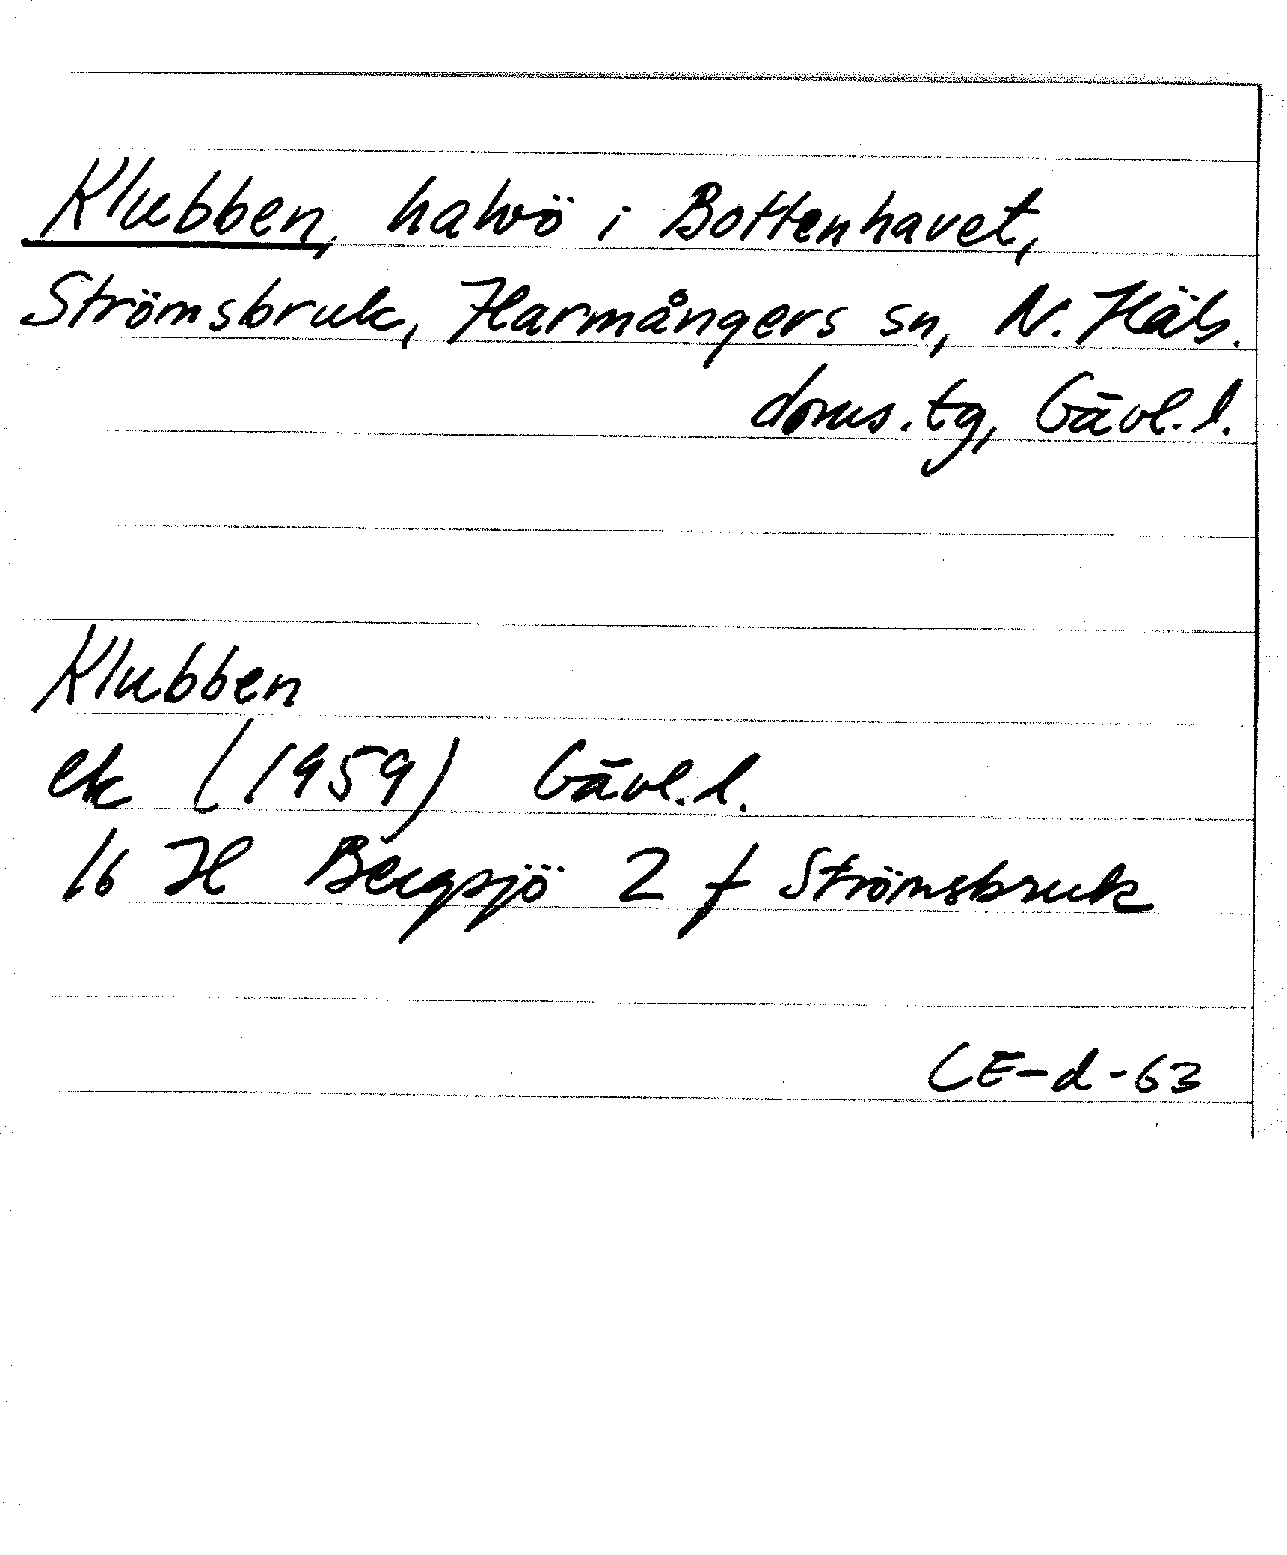 Klubben, halvö i Bottenhavet,
Strömsbruk, Harmångers sn, N. Häls.
doms.tg, Gävl.l.
Klubben
ek (1959) Gävl.l.
16 H Bergsjö 2 f Strömsbruk
CE-d-63